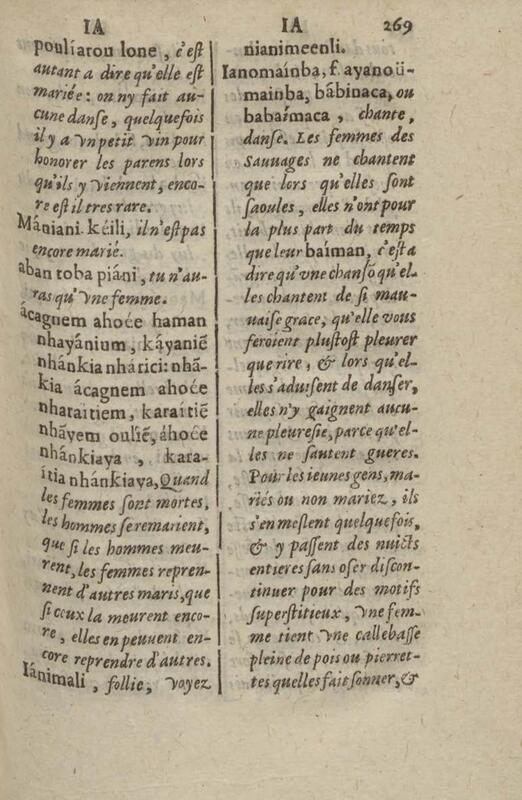 IA
pouliarou lone, c'eſt
autant a dire qu'elle eſt
mariée: on ny fait au-
cune danſe, quelquefois
il y a vn petit vin pour
honorer les parens lors
qu'ils y viennent, enco-
re eſt il tres rare.
Mániani. kéili, il n'eſt pas
encore marié.
aban toba piáni, tu n'au-
ras qu'vne femme.
ácagnem ahoće haman
nhayánium, káyaniẽ
nhánkia nhárici: nhã-
kia ácagnem ahoće
nharaitiem, karaitiẽ
nhãyem ouliẽ, áhoće
nhánkiaya, kara-
ítia nhánkiaya, Quand
les femmes ſont mortes,
les hommes ſe remarient,
que ſi les hommes meu-
rent, les femmes repren-
nent d'autres maris, que
ſi ceux la meurent enco-
re, elles en peuuent en-
core reprendre d'autres.
Iánimali, follie, voyez
IA 269
nianimeenli.
Ianomaínba, f. ayanoü-
mainba, bâbinaca, ou
babaímaca, chante,
danſe. Les femmes des
Sauuages ne chantent
que lors qu'elles ſont
ſaoules, elles n'ont pour
la plus part du temps
que leur baíman, c'eſt a
dire qu'vne chanſõ qu'el-
les chantent de ſi mau-
uaiſe grace, qu'elle vous
feroient pluſtoſt pleurer
que rire, & lors qu'el-
les s'aduiſent de danſer,
elles n'y gaignent aucu-
ne pleureſie, parce qu'el-
les ne ſautent gueres.
Pour les ieunes gens, ma-
riés ou non mariez, ils
s'en meſlent quelquefois,
& y paſſent des nuicts
entieres ſans oſer diſcon-
tinuer pour des motifs
ſuperſtitieux, vne fem-
me tient vne callebaſſe
pleine de pois ou pierret-
tes quelles fait ſonner, &